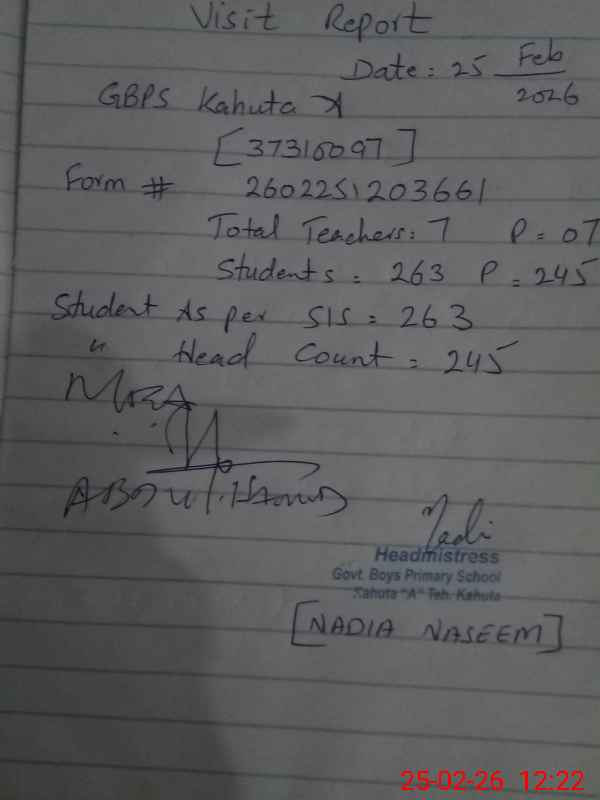 Visit Report
Date: 25 Feb 2026
GBPS Kahuta A
[37310097]
Form # 2602251203661
Total Teachers: 7 P = 07
Students = 263 P = 245
Student As per SIS = 263
" Head Count = 245
Nadi
Headmistress
Govt. Boys Primary School
Kahuta "A" Teh. Kahuta
[NADIA NASEEM]
25-02-26 12:22